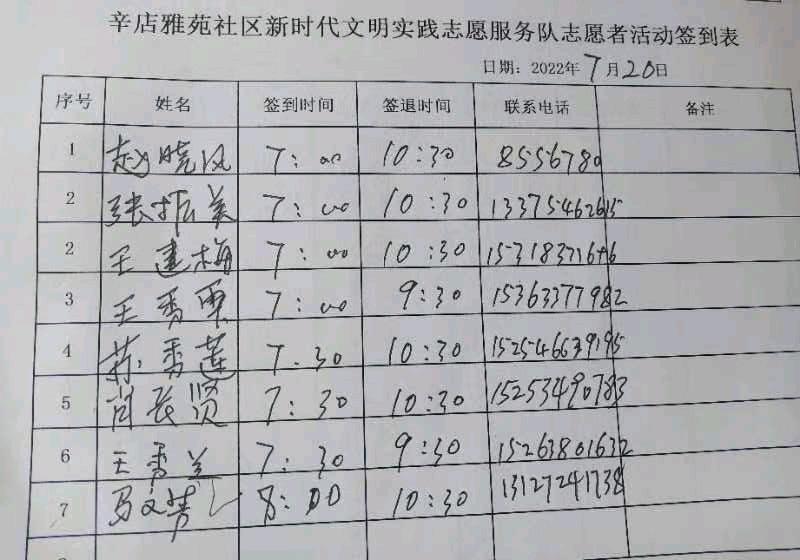 辛店雅苑社区新时代文明实践志愿服务队志愿者活动签到表
日期：2022年7月20日
序号 姓名 签到时间 签退时间 联系电话 备注
1 赵晓风 7:00 10:30 8556780
2 张振美 7:00 10:30 13375462615
2 王建梅 7:00 10:30
3 王秀栗 7:00 9:30 15363377982
4 苏秀莲 7.30 10:30
5 肖长贤 7:30 10:30 15253490783
6 王秀兰 7:30 9:30 15263801632
7 马文秀 8:00 10:30 13127241738